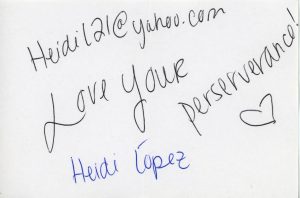 Heidi121@yahoo.com
Love Your
perserverance!
Heidi Lopez